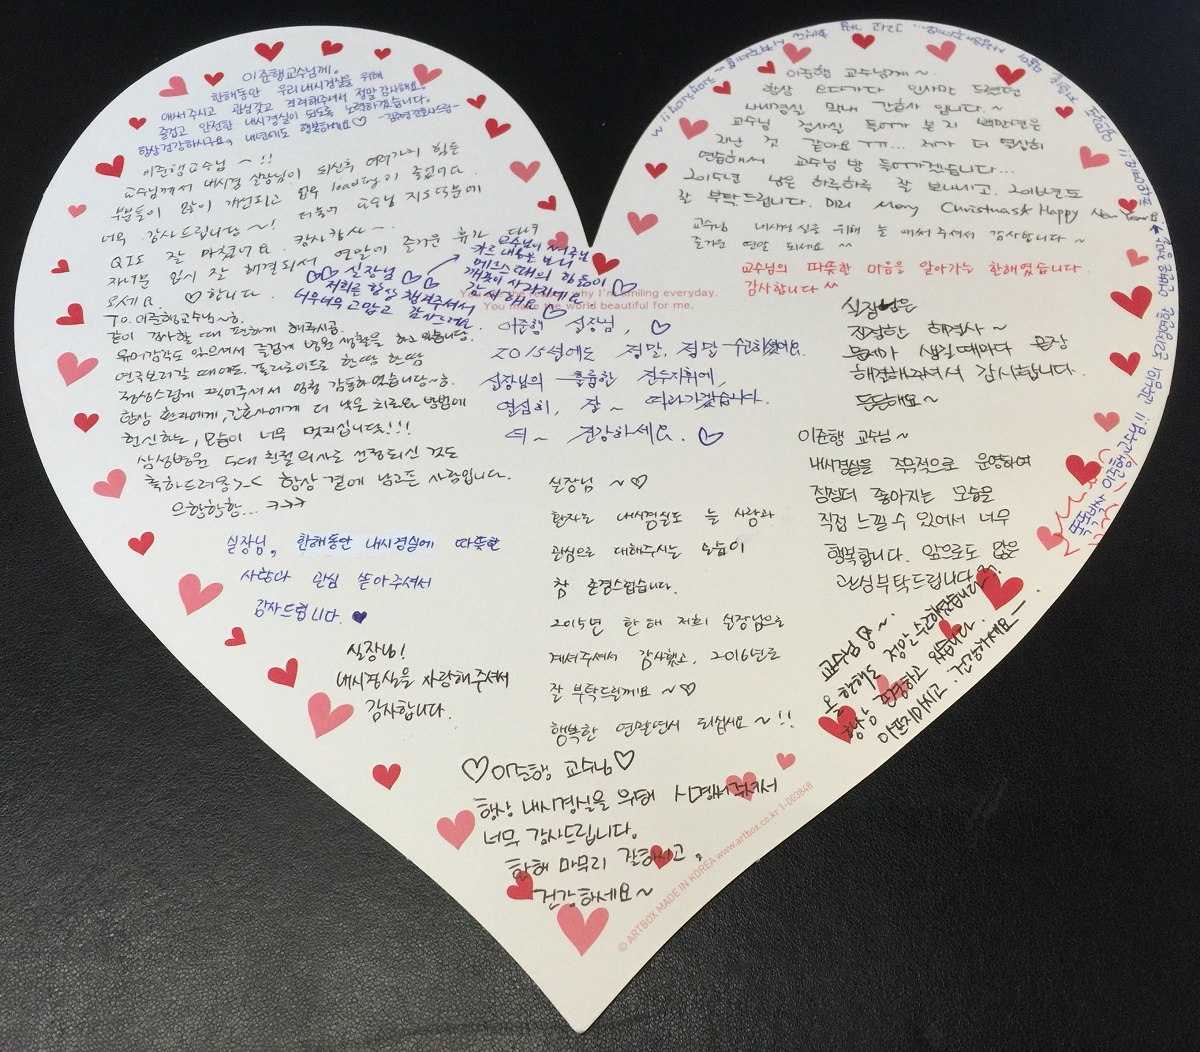 이준행교수님께.
한해동안 우리내시경실을 위해
애써주시고 관심갖고 격려해주셔서 정말 감사해요.
즐겁고 안전한 내시경실이 되도록 노력하겠습니다.
항상건강하시구요, 내년에도 행복하세요♡
이준행교수님 ~ !!
교수님께서 내시경 실장님이 되신후 여러가지 힘든
부분들이 많이 개선되고 업무 loading이 줄었어요.
너무 감사드립니다 ~! 더불어 교수님 지도덕분에
QI도 잘 마쳤너요. 감사감사 ~
자녀분 입시 잘 해결되셔서 연말이 즐거운 휴가 다녀
오세요. ♡합니다.
교수님이 써주신
카드 내용을 보니
메르스때의 힘듦이
♡♡ 실장님 ♡
저희를 항상 챙겨주셔서
너무너무 고맙고 감사드려요.
You are the reason why I'm smiling everyday.
You make the world beautiful for me.
To. 이준행교수님~♡.
같이 검사할 때 편하게 해주시공.
유머감각도 있으셔서 즐겁게 병원 생활을 하고 있습니당.
연극보러갈 때에도 폴라로이드로 한땀 한땀
정성스럽게 찍어주셔서 엄청 감동하였습니당~♡.
항상 환자에게, 간호사에게 더 나은 치료와 방법에
헌신하는, 모습이 너무 멋지십니당!!!
삼성병원 5대 친절의사로 선정되신 것도
축하드려용>-< 항상 곁에 남고픈 사람입니다.
으항항항...
실장님, 한해동안 내시경실에 따뜻한
사랑과 관심 쏟아주셔서
감사드립니다. ♥
실장님!
내시경실을 사랑해주셔서
감사합니다.
이준행 실장님, ♡
2015년에도 정말, 정말 수고하셨어요.
실장님의 훌륭한 진두지휘에,
열심히, 잘~ 따라가겠습니다.
늘~ 건강하세요. ♡
실장님 ~♡
환자도 내시경실도 늘 사랑과
관심으로 대해주시는 모습이
참 존경스럽습니다.
2015년 한해 저희 실장님으로
계셔주셔서 감사했고, 2016년도
잘 부탁드릴께요 ~♡
행복한 연말연시 되십시요 ~!!
♡이준행 교수님♡
항상 내시경실을 위해 신경써주셔서
너무 감사드립니다.
한해 마무리 잘하시고,
건강하세요~
이준행 교수님께~.
항상 오다가다 인사만 드렸던
내시경실 막내 간호사 입니다.~
교수님 검사실 들어가 본 지 백만년은
지난 것 같아요 ㅠㅠ... 제가 더 열심히
연습해서 교수님 방 들어가겠습니다...
2015년 남은 하루하루 잘 보내시고, 2016년도
잘 부탁드립니다. 미리 Merry Christmas★ Happy New Year
교수님 내시경실을 위해 늘 애써주셔서 감사합니다~
즐거운 연말 되세요 ^^
교수님의 따뜻한 마음을 알아가는 한해였습니다.
감사합니다 ^^
실장님은
진정한 해결사~
문제가 생길때마다 몽땅
해결해주셔서 감사합니다.
든든해요~
이준행 교수님~
내시경실을 전무적으로 운영하여
점점더 좋아지는 모습을
직접 느낄 수 있어서 너무
행복합니다. 앞으로도 많은
관심부탁드립니다
교수님 ~.
올 한해 정말 수고하셨습니다.
© ARTBOX MADE IN KOREA www.artbox.co.kr 1-003848